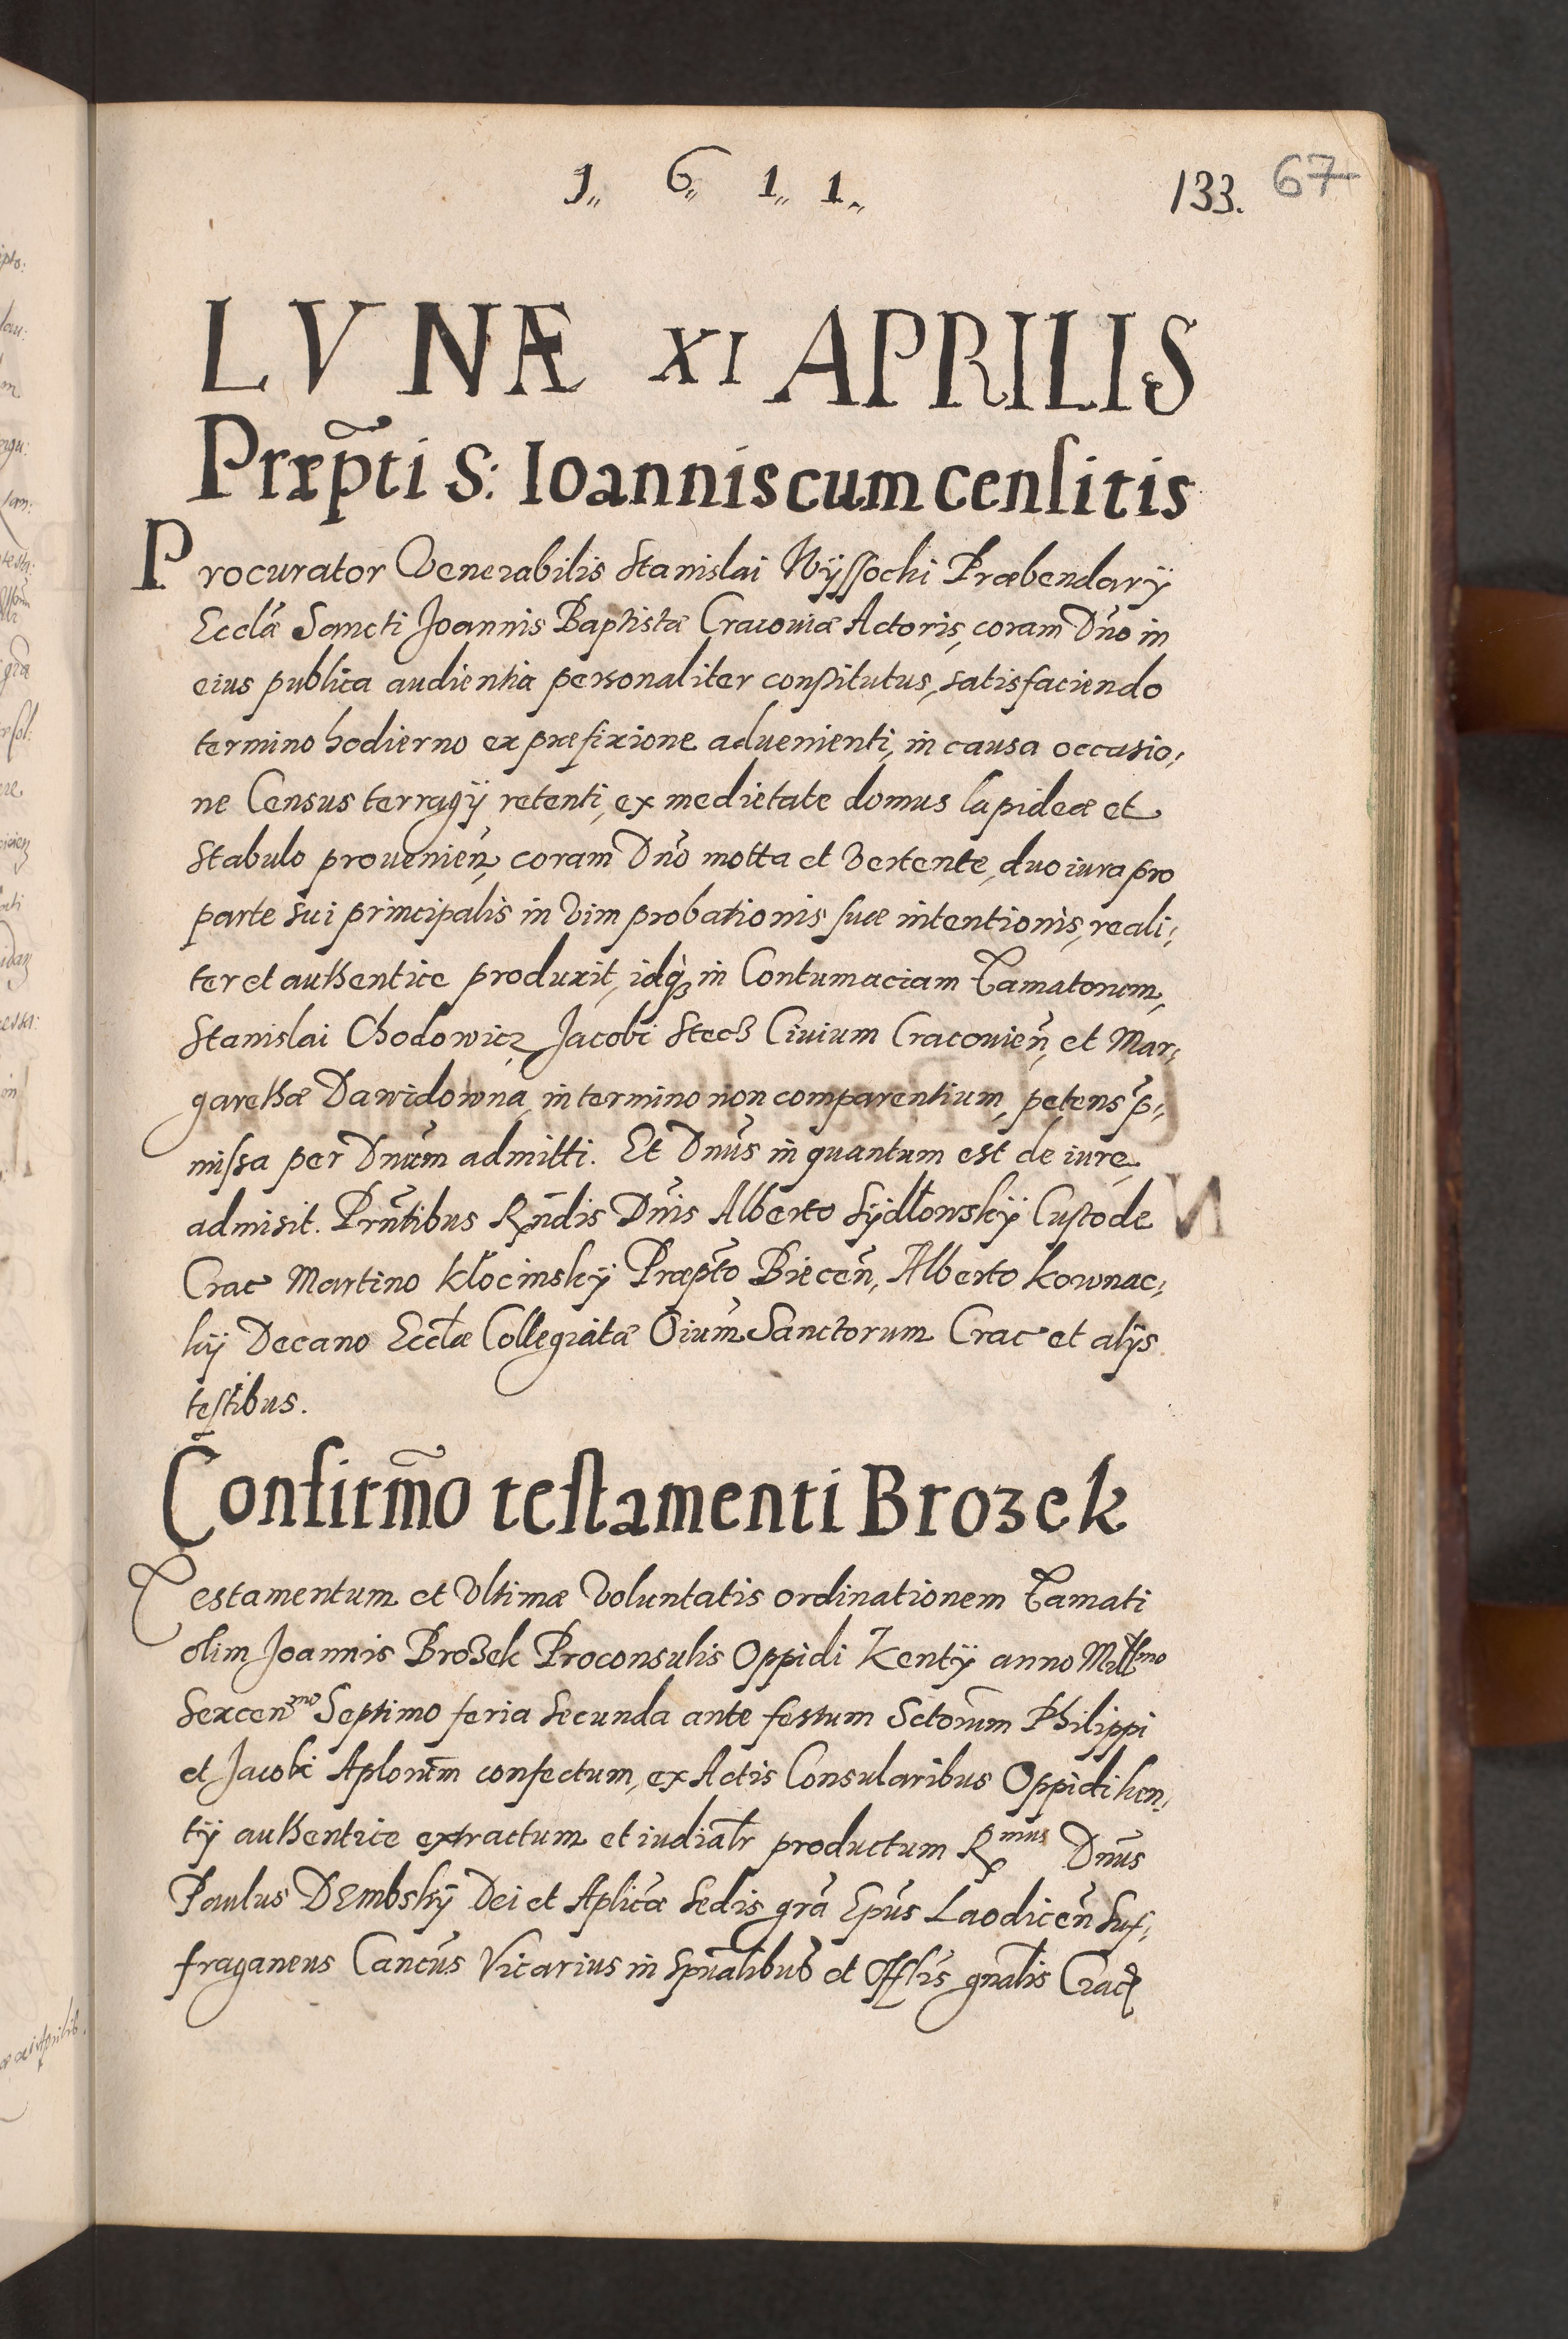 1,, 6,, 1,, 1,,
133. 67
LVNÆ XI APRILIS
Præp̃ti S: Ioannis cum censitis
Procurator Venerabilis Stanislai Wÿssochi Præbendarÿ
Eccłæ Sancti Joannis Baptistæ Cracoviæ Actoris, coram Dño in
eius publica audientia personaliter constitutus, satisfaciendo
termino hodierno ex præfixione advenienti, in causa occasio,
ne Census terragÿ retenti, ex medietate domus lapideæ et
Stabulo provenień, coram Dño motta et vertente, duo iura pro
parte sui principalis in vim probationis suæ intentionis, reali,
ter et authentice produxit, idqꝫ in Contumaciam Famatorum,
Stanislai Chodowicz Jacobi Stech Civium Cracovień, et Mar,
garethæ Dawidowna, in termino non comparentium, petens p̃,
missa per Dnum admitti. Et Dnus in quantum est de iure
admisit. Prñtibus Rñdis Dñis Alberto Sÿdłowskÿ Custode
Crac Martino Kłocinskÿ Præpto Biecen̄, Alberto Kownac,
kÿ Decano Eccłæ Collegiatæ Oium Sanctorum Crac et alÿs
testibus.
Confirm̃o testamenti Brozek
Testamentum et Vltimæ Voluntatis ordinationem Famati
olim Joannis Brozek Proconsulis Oppidi Kentÿ anno Mill̃mo
Sexcenmo Septimo feria Secunda ante festum Sctorum Philippi
et Jacobi Aplorum confectum, ex Actis Consularibus Oppidi Ken,
tÿ authentice extractum et iudicialr productum Rmus Dnus
Paulus Dembskÿ Dei et Aplicæ Sedis gra Epus Laodicen Suf,
fraganeus Cancus Vicarius in Spualibus et Offlis gnalis Crac